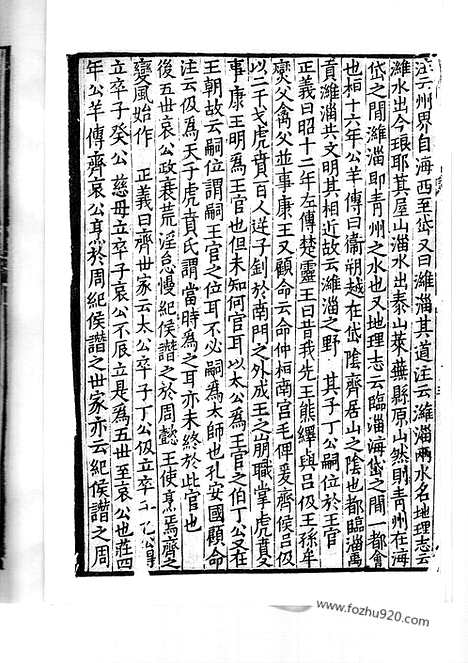 注云州界自海西至岱又曰濰淄其道注云濰淄兩水名地理志云
濰水出今琅耶其屋山淄水出泰山萊蕪縣原山然則青州在海
岱之間濰淄即青州之水也又地理志云臨淄海岱之間一都會
也桓十六年公羊傳曰衞朔越在岱陰齊居山之陰也都臨淄禹
貢濰淄共文明其相近故云濰淄之野 其子丁公嗣位於王官
正義曰昭十二年左傳楚靈王曰昔我先王熊繹與呂伋王孫牟
燮父禽父並事康王又顧命云仲桓南宮毛俾爰齊侯呂伋
以二干戈虎賁百人逆子釗於南門之外成王之崩職掌虎賁又
事康王明爲王官也但未知何官耳以太公爲王官之伯丁公又在
王朝故云嗣位謂嗣王官之位耳不必嗣爲太師也孔安國顧命
注云伋爲天子虎賁氏謂當時爲之耳亦未終於此官也
後五世哀公政衰荒淫怠慢紀侯譖之於周懿王使烹焉齊之
變風始作 正義曰齊世家云太公卒子丁公伋立卒子乙公得
立卒子癸公慈母立卒子哀公不辰立是爲五世至哀公也莊四
年公羊傳齊哀公烹於周紀侯譖之世家亦云紀侯譖之周
www.fozhu920.com